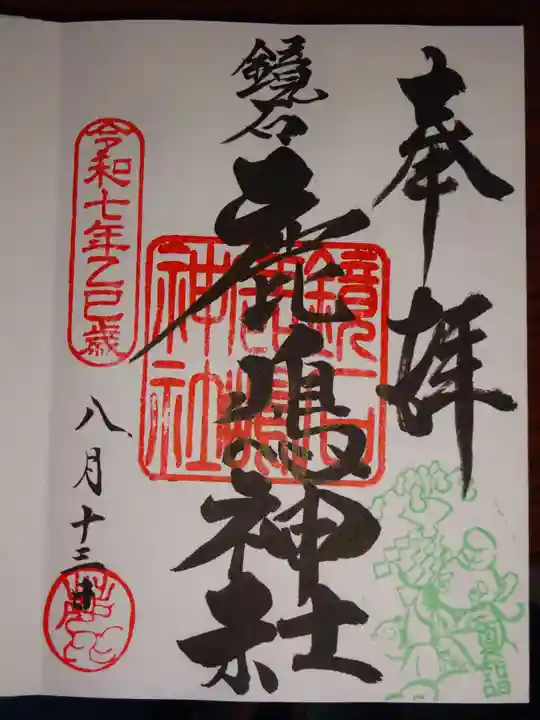 奉拝
鏡石
鹿嶋神社
鏡石鹿嶋神社
令和七年乙巳歳
八月十三日
夏詣